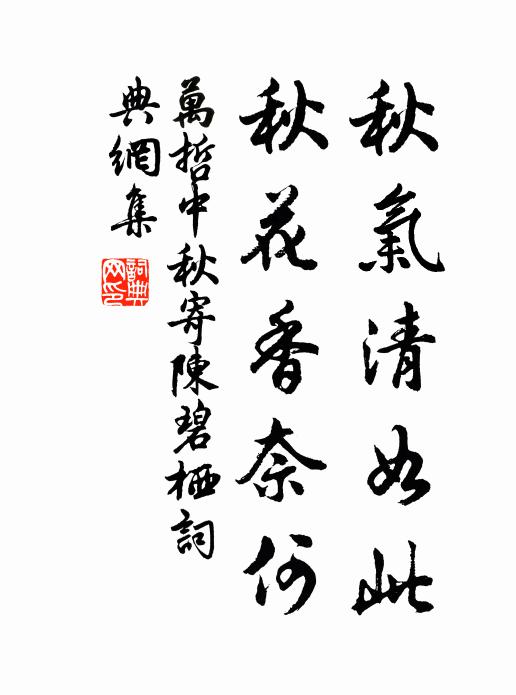 秋氣清如此
秋花香奈何
萬哲中秋寄陳碧栖詞
典網集
詞典
网印